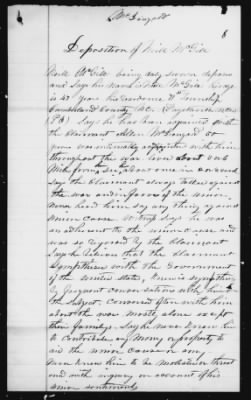 McDougald
8
Deposition of Neill McGill
Neill McGill being duly sworn deposes
and say his name is Neill McGill his age
is 47 years his residence Township
Cumberland County N.C. (Fayetteville
P.O.) Says he has been acquainted with
the Claimant Allen McDougald
years was intimately acquainted with him
throughout the war lived about one
Mile from him, about once in a
says the Claimant always talked against
the war and in favor of the Union.
never heard him say any thing against
Union cause Says he was
an adherent to the union cause and
was so regarded by the Claimant
Says he believes that the Claimant
Sympathised with the Government
of the United States, knew his sympathy
by frequent conversations with him on
the Subject, conversed often with him
about the war mostly alone except
their families. Say he never knew him
to Contribute any Money or property to
aid the union cause or army
never knew him to be molested or threat
ened with injury on account of his
union sentiments